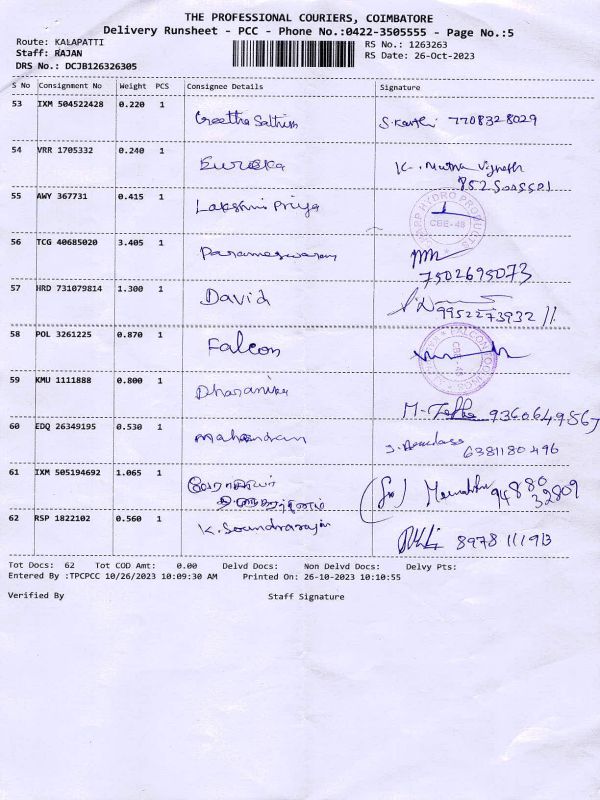 THE PROFESSIONAL COURIERS, COIMBATORE
Delivery Runsheet - PCC - Phone No.:0422-3505555 - Page No.:5
Route: KALAPATTI
Staff: RAJAN
DRS No.: DCJB126326305
RS No.: 1263263
RS Date: 26-Oct-2023
S No Consignment No Weight PCS Consignee Details Signature
53 IXM 504522428 0.220 1 Geetha Sathish S. Karthi 7708328029
54 VRR 1705332 0.240 1 Eureka K. Muthu Vignesh
55 AWY 367731 0.415 1 Lakshmi Priya
HYDRO PRODUCTS
CBE-48
56 TCG 40685020 3.405 1 Parameswaran
7502695073
57 HRD 731079814 1.300 1 David 9952273932
58 POL 3261225 0.870 1 Falcon
FALCON
CBE
59 KMU 1111888 0.800 1 Dharanika 9360649567
60 EDQ 26349195 0.530 1 Mahendran 6381180496
61 IXM 505194692 1.065 1 94880
32809
62 RSP 1822102 0.560 1 K. Soundrarajan 8978111913
Tot Docs: 62 Tot COD Amt: 0.00 Delvd Docs: Non Delvd Docs: Delvy Pts:
Entered By :TPCPCC 10/26/2023 10:09:30 AM Printed On: 26-10-2023 10:10:55
Verified By Staff Signature